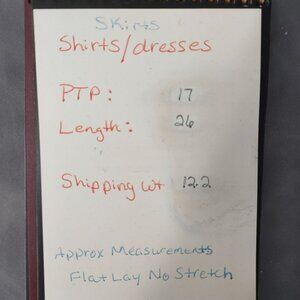 Skirts
Shirts/dresses
PTP: 17
Length: 26
Shipping wt 12.2
Approx Measurements
Flat Lay No Stretch